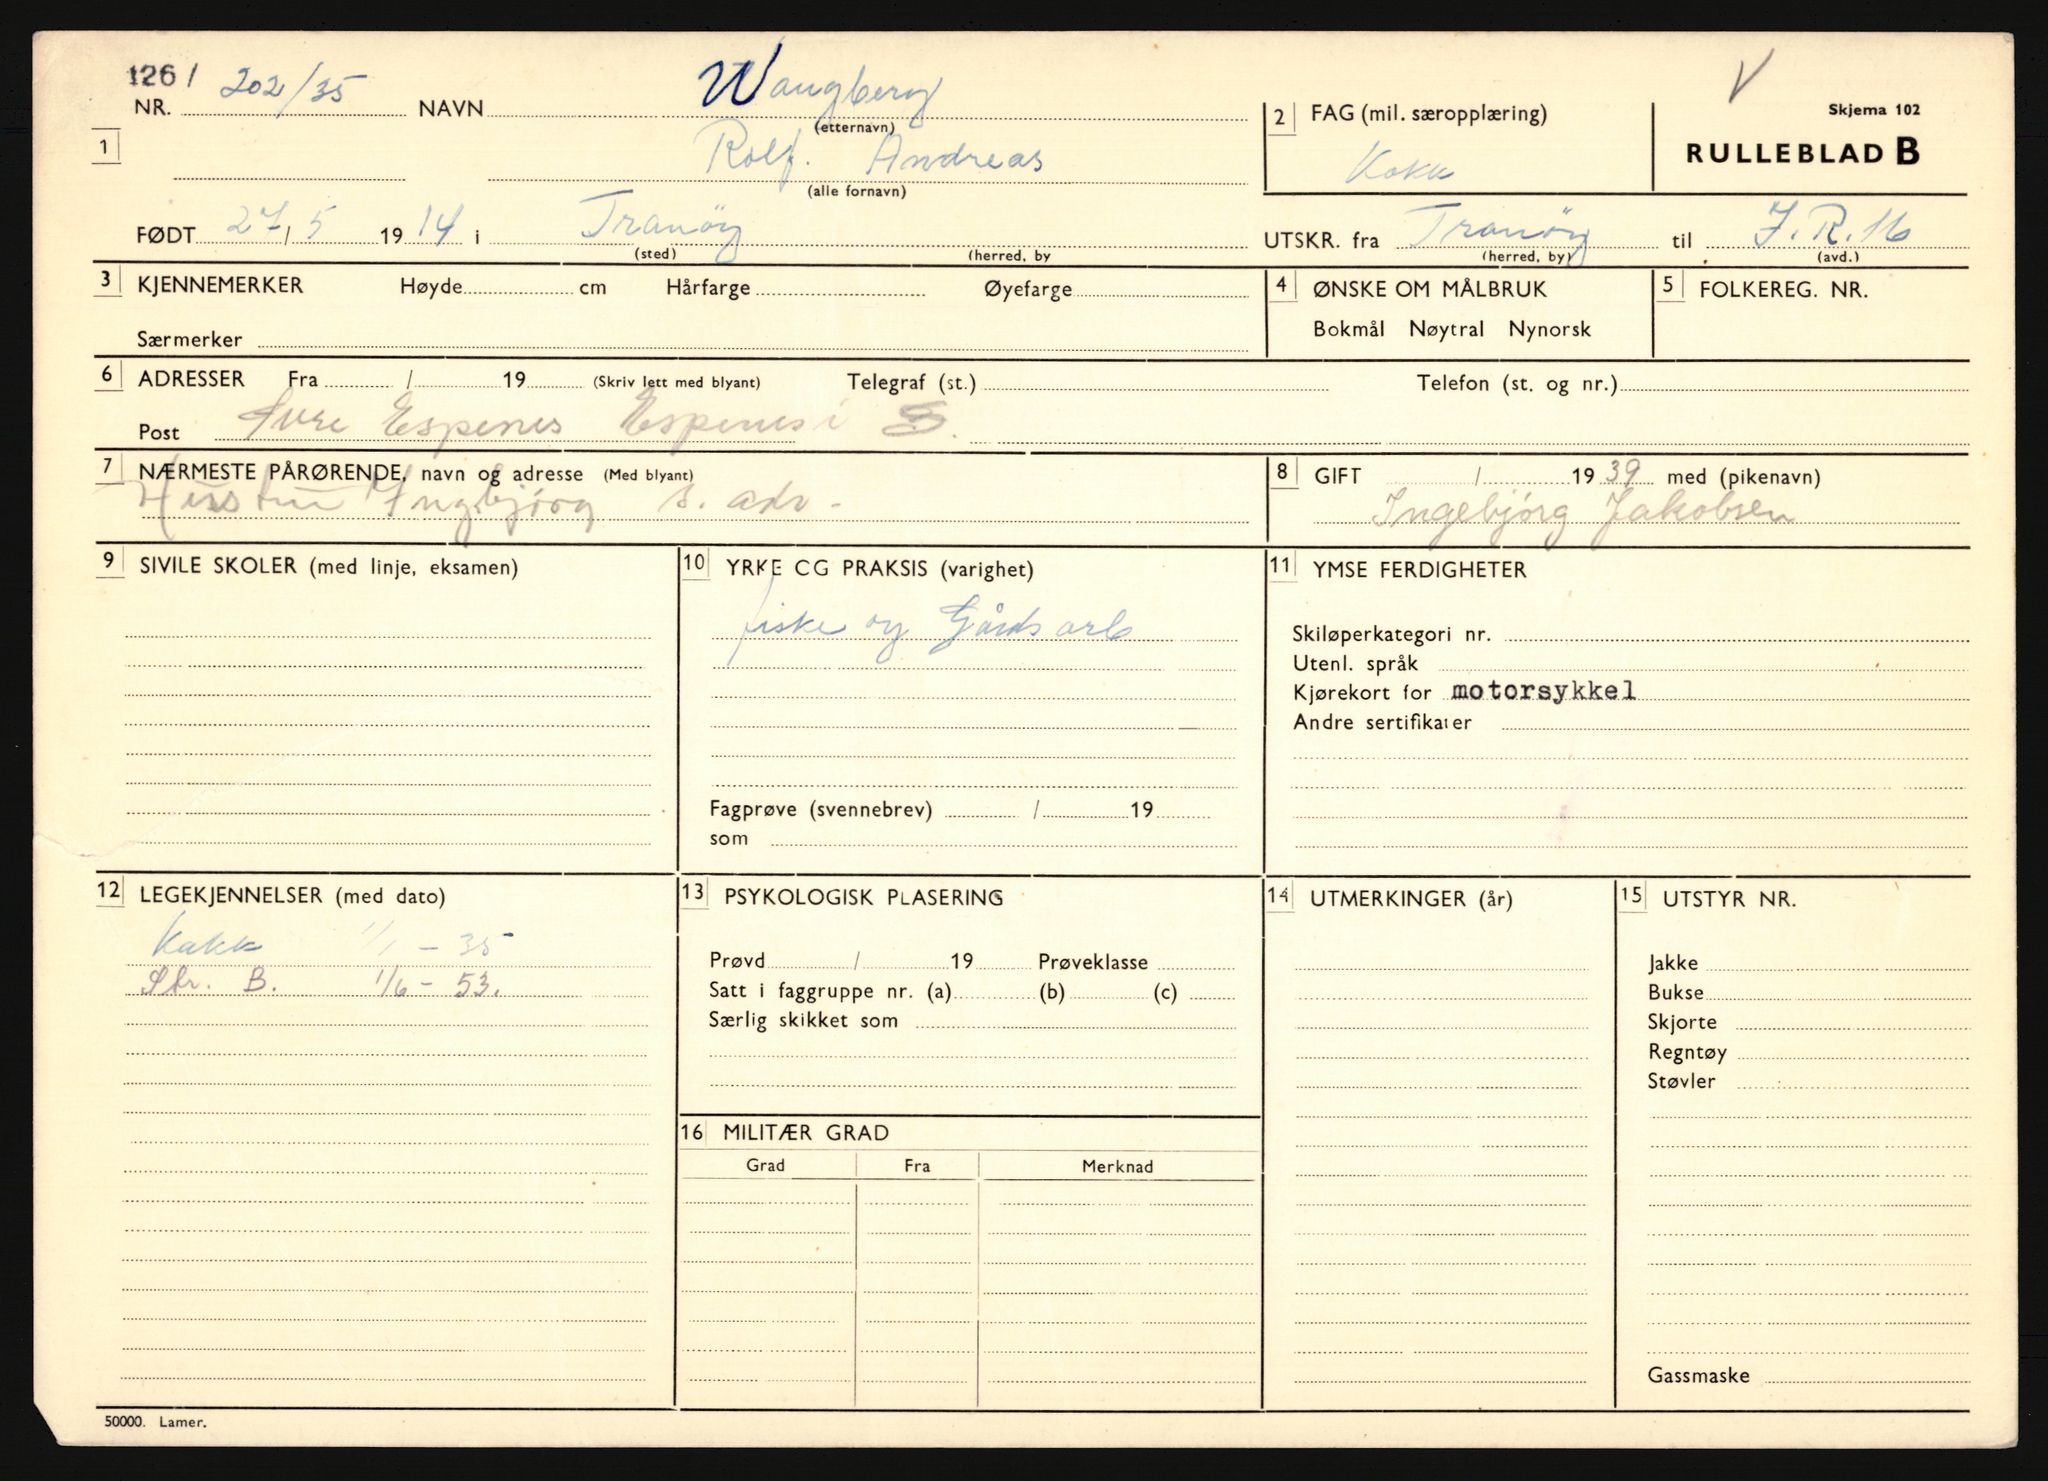 1261 202/35 Wangberg
NR. NAVN (etternavn) 2 FAG (mil. særopplæring) Skjema 102
1 Rolf. Andreas Kokk RULLEBLAD B
(alle fornavn)
FØDT 27/5 1914 i Tranöy UTSKR. fra Tranöy til I.R.16
(sted) (herred, by (herred, by) (avd.)
3 KJENNEMERKER Høyde cm Hårfarge Øyefarge 4 ØNSKE OM MÅLBRUK 5 FOLKEREG. NR.
Særmerker Bokmål Nøytral Nynorsk
6 ADRESSER Fra / 19 (Skriv lett med blyant) Telegraf (st.) Telefon (st. og nr.)
Post Espenes Espenes i
7 NÆRMESTE PÅRØRENDE, navn og adresse (Med blyant) 8 GIFT / 1939 med (pikenavn)
Hustru Ingebjørg s. adr. Ingebjørg Jakobsen
9 SIVILE SKOLER (med linje, eksamen) 10 YRKE CG PRAKSIS (varighet) 11 YMSE FERDIGHETER
fiske og Gårds arb
Skiløperkategori nr.
Utenl. språk
Kjørekort for motorsykkel
Andre sertifikater
Fagprøve (svennebrev) / 19
som
12 LEGEKJENNELSER (med dato) 13 PSYKOLOGISK PLASERING 14 UTMERKINGER (år) 15 UTSTYR NR.
Kokk 1/1 - 35
Prøvd / 19 Prøveklasse Jakke
Str. B. 1/6 - 53.
Satt i faggruppe nr. (a) (b) (c) Bukse
Særlig skikket som Skjorte
Regntøy
Støvler
16 MILITÆR GRAD
Grad Fra Merknad
Gassmaske
50000. Lamer.